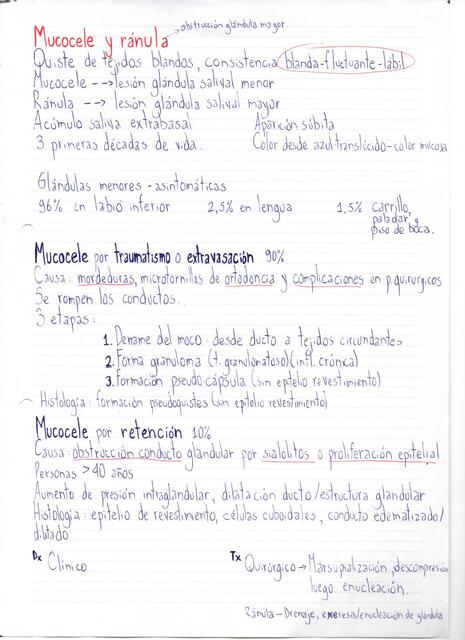 Mucocele y ránula → obstrucción glándula mayor.
Quiste de tejidos blandos, consistencia blanda-fluctuante-labil
Mucocele --> lesión glándula salival menor
Ránula --> lesión glándula salival mayor
Acúmulo saliva extrabasal Aparición súbita
3 primeras décadas de vida. Color desde azul translúcido-color mucosa
Glándulas menores-asintomáticas
96% en labio inferior 2,5% en lengua 1,5% carrillo,
paladar y
piso de boca.
Mucocele por traumatismo o extravasación 90%
Causa: mordeduras, microtornillos de ortodoncia y complicaciones en p.quirurgicos
Se rompen los conductos.
3 etapas:
1. Derrame del moco: desde ducto a tejidos circundantes
2. Forma granuloma (t. granulomatoso)(infl. crónica)
3. Formación pseudo-cápsula (sin eptelio revestimiento)
Histología: formación pseudoquistes (sin eptelio revestimiento)
Mucocele por retención 10%
Causa: obstrucción conducto glandular por sialolitos o proliferación epitelial
Personas >40 años
Aumento de presión intraglandular, dilatación ducto/estructura glandular
Histología: epitelio de revestimiento, células cuboidales, conducto edematizado/
diltado
Dx Clínico Tx Quirúrgico → Marsupialización, descompresión
luego enucleación.
Ránula - Drenaje, exeresis/enucleación de glándula